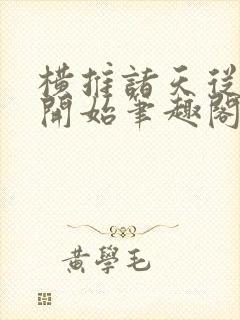 橫推諸天從
開始筆趣閣
黃學毛